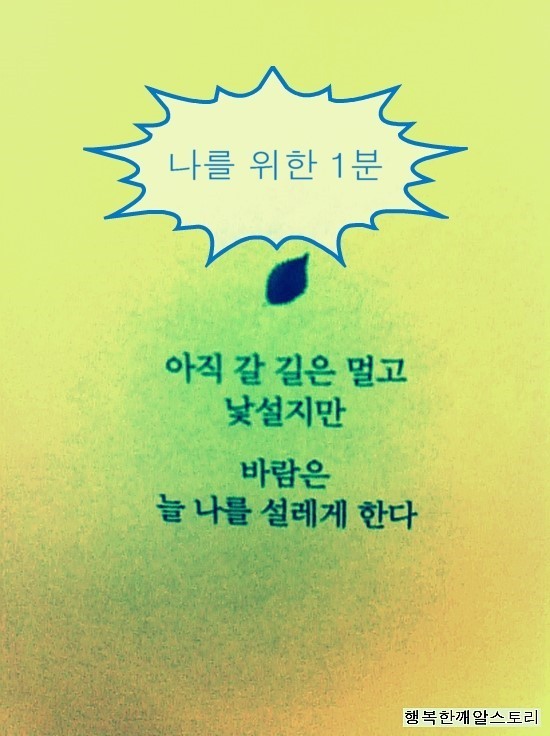 나를 위한 1분
아직 갈 길은 멀고
낯설지만
바람은
늘 나를 설레게 한다
행복한깨알스토리